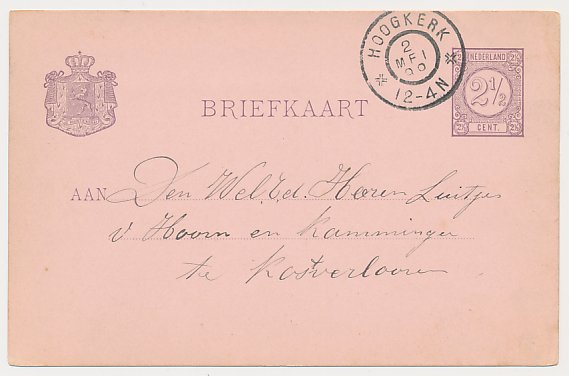 HOOGKERK
2
MEI
99
12-4N
NEDERLAND
2½
CENT.
BRIEFKAART
AAN Den Wel.Ed. Heeren Luitjes
v Hoorn en Kamminga
te Kostverloren